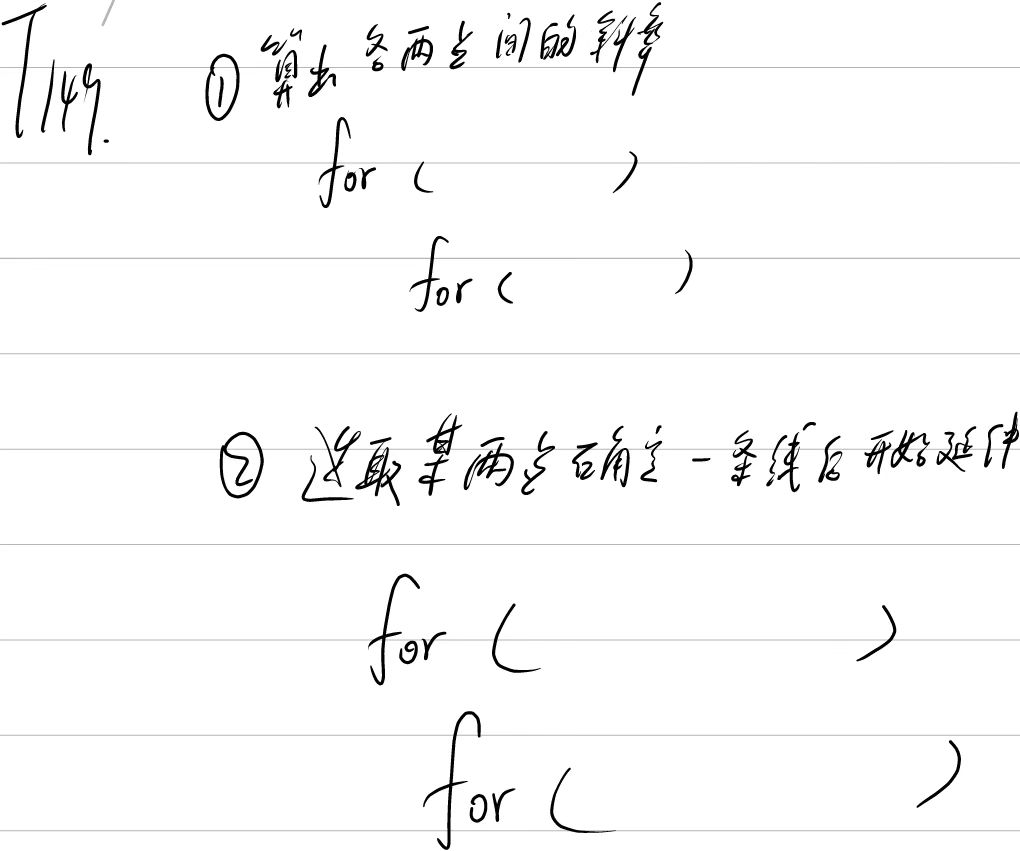 T149. ① 算出各两点间的斜率
for ( )
for ( )
② 选取某两点确定一条线后开始延伸
for ( )
for ( )